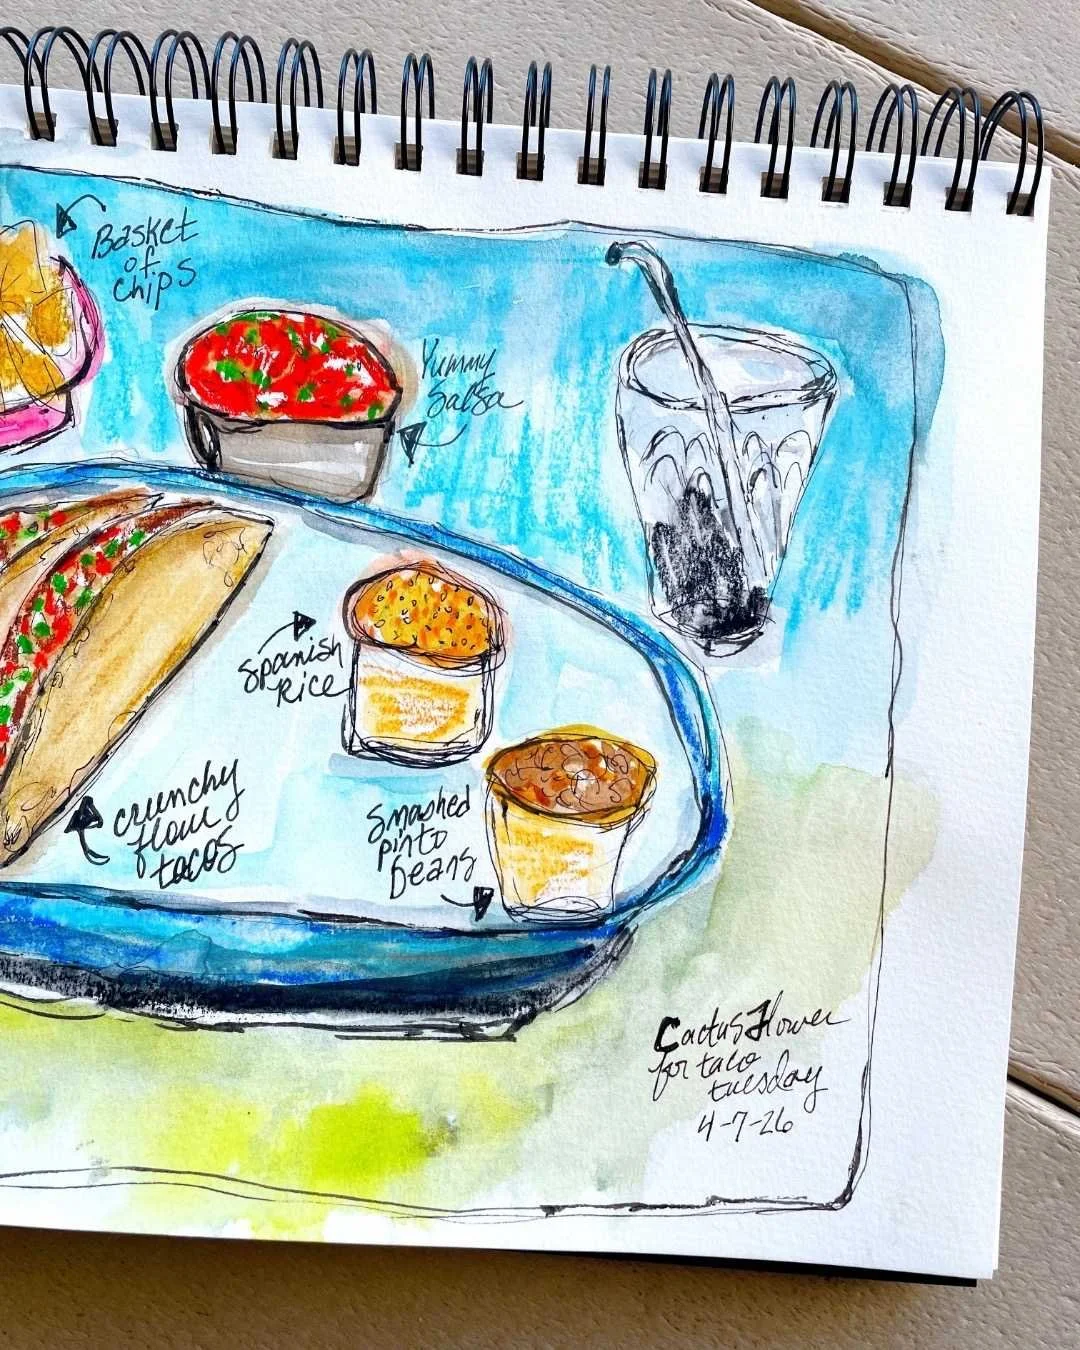 Basket
of
chips
Yummy
Salsa
Spanish
Rice
crunchy
flour
tacos
Smashed
pinto
beans
Cactus Flower
for taco
tuesday
4-7-26